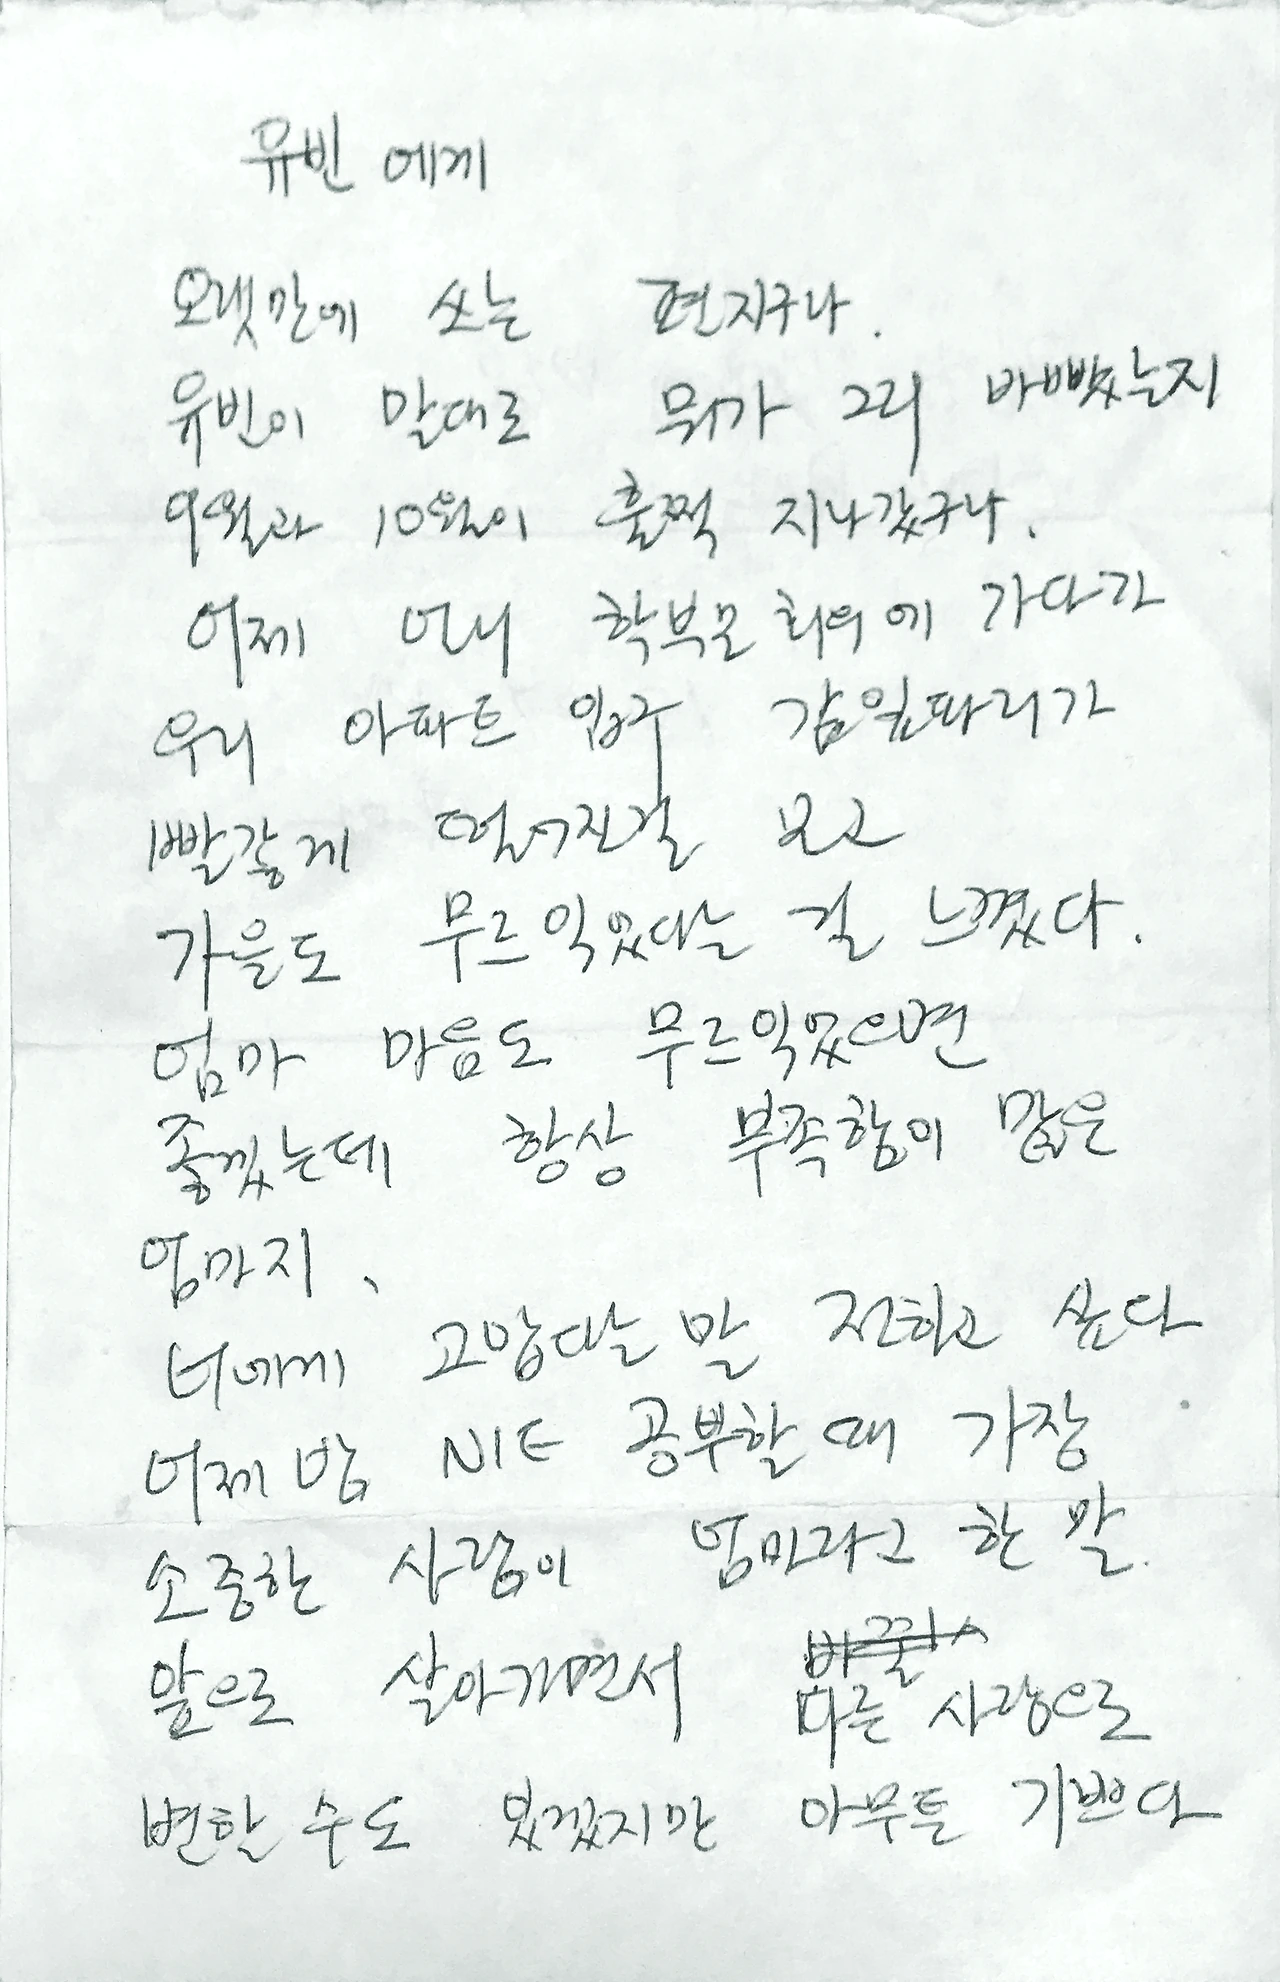 유빈에게
오랫만에 쓰는 편지구나.
유빈이 말대로 뭐가 그리 바빴는지
9월과 10월이 훌쩍 지나갔구나.
어제 언니 학부모 회의에 가다가
우리 아파트 입구 감잎파리가
빨갛게 떨어진걸 보고
가을도 무르익었다는 걸 느꼈다.
엄마 마음도 무르익었으면
좋겠는데 항상 부족함이 많은
엄마지.
너에게 고맙다는 말 전하고 싶다
어제밤 NIE 공부할 때 가장
소중한 사람이 엄마라고 한 말.
앞으로 살아가면서
다른 사람으로
변할 수도 있겠지만 아무튼 기쁘다